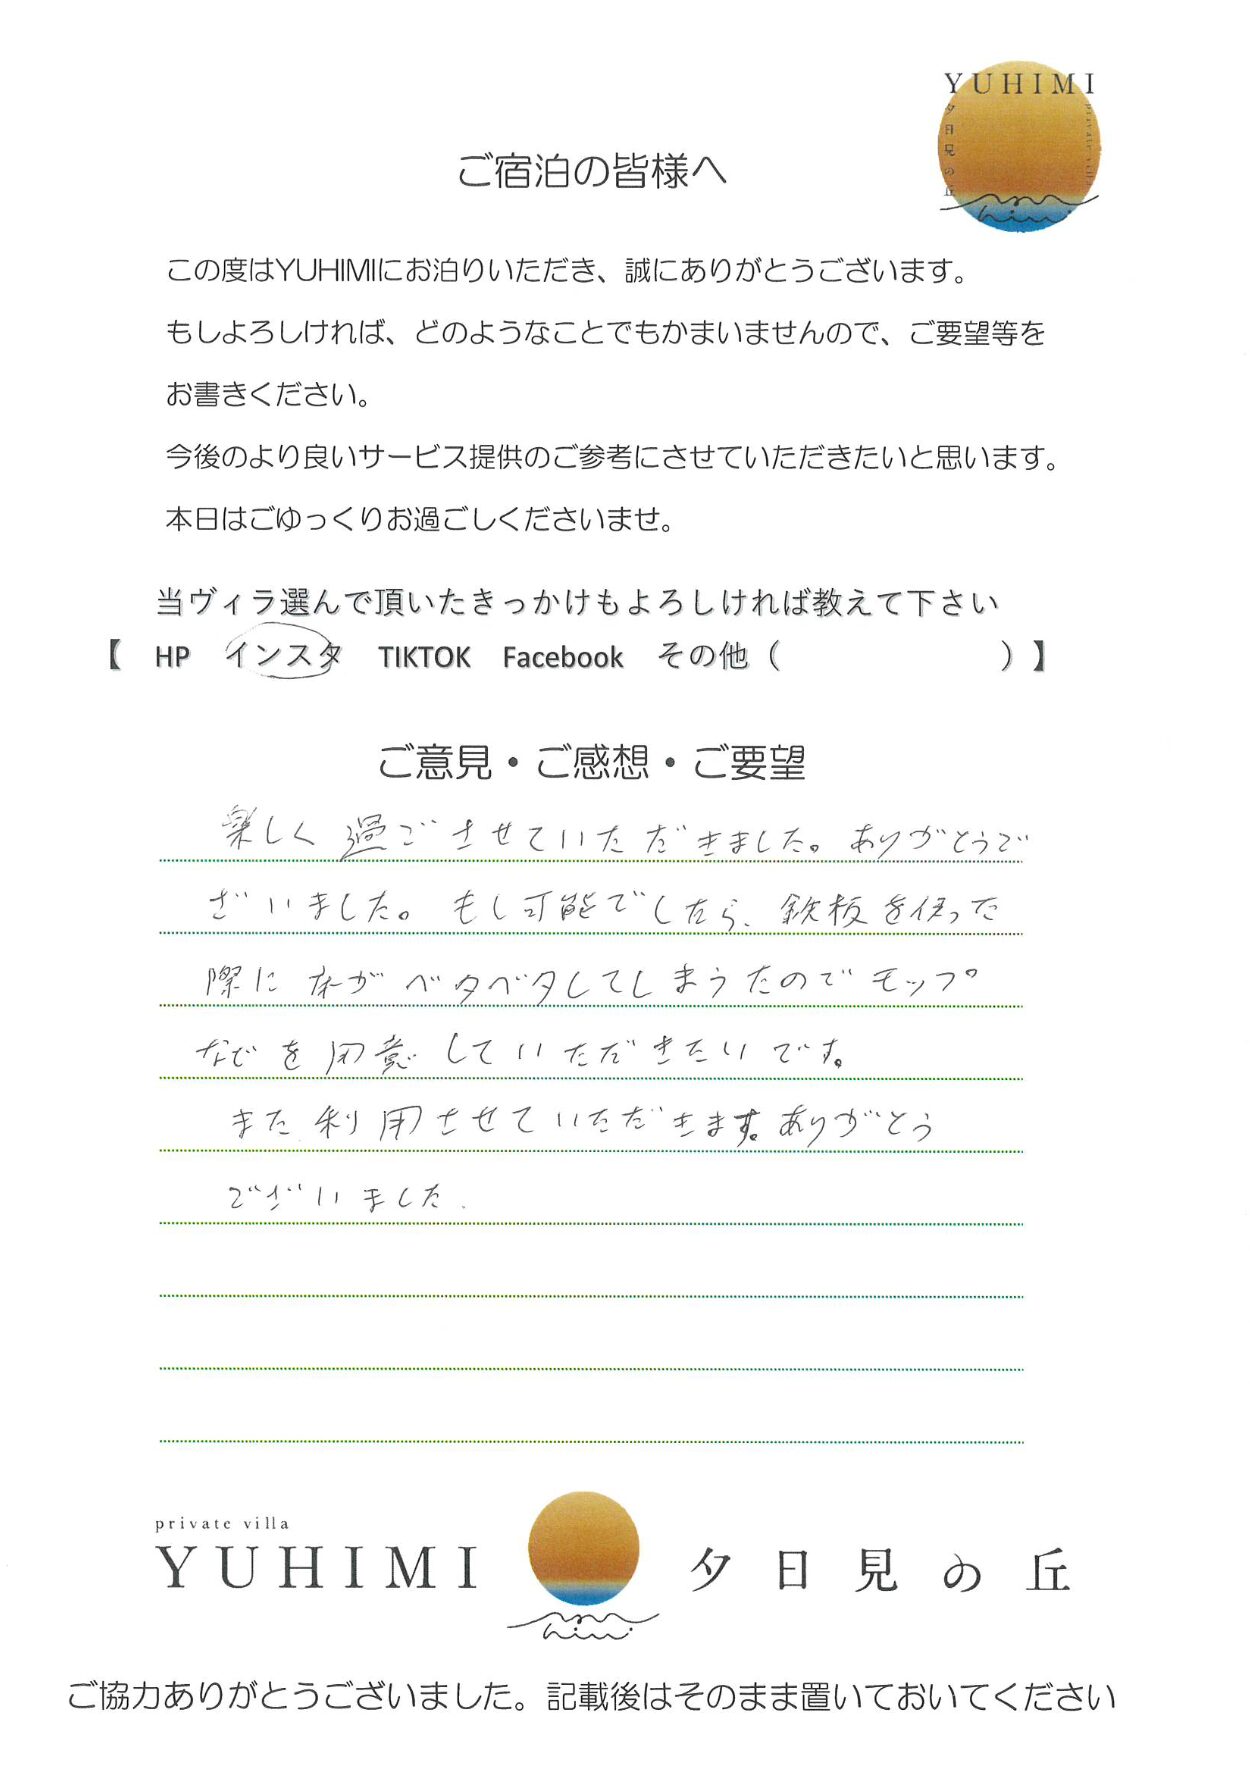 YUHIMI
夕日見の丘
private villa
ご宿泊の皆様へ
この度はYUHIMIにお泊りいただき、誠にありがとうございます。
もしよろしければ、どのようなことでもかまいませんので、ご要望等を
お書きください。
今後のより良いサービス提供のご参考にさせていただきたいと思います。
本日はごゆっくりお過ごしくださいませ。
当ヴィラ選んで頂いたきっかけもよろしければ教えて下さい
【 HP インスタ TIKTOK Facebook その他（ ）】
ご意見・ご感想・ご要望
楽しく過ごさせていただきました。ありがとうご
ざいました。もし可能でしたら、鉄板を使った
際に床がベタベタしてしまうたのでモップ
などを用意していただきたいです。
また利用させていただきます。ありがとう
ございました.
private villa
YUHIMI 夕日見の丘
ご協力ありがとうございました。記載後はそのまま置いておいてください